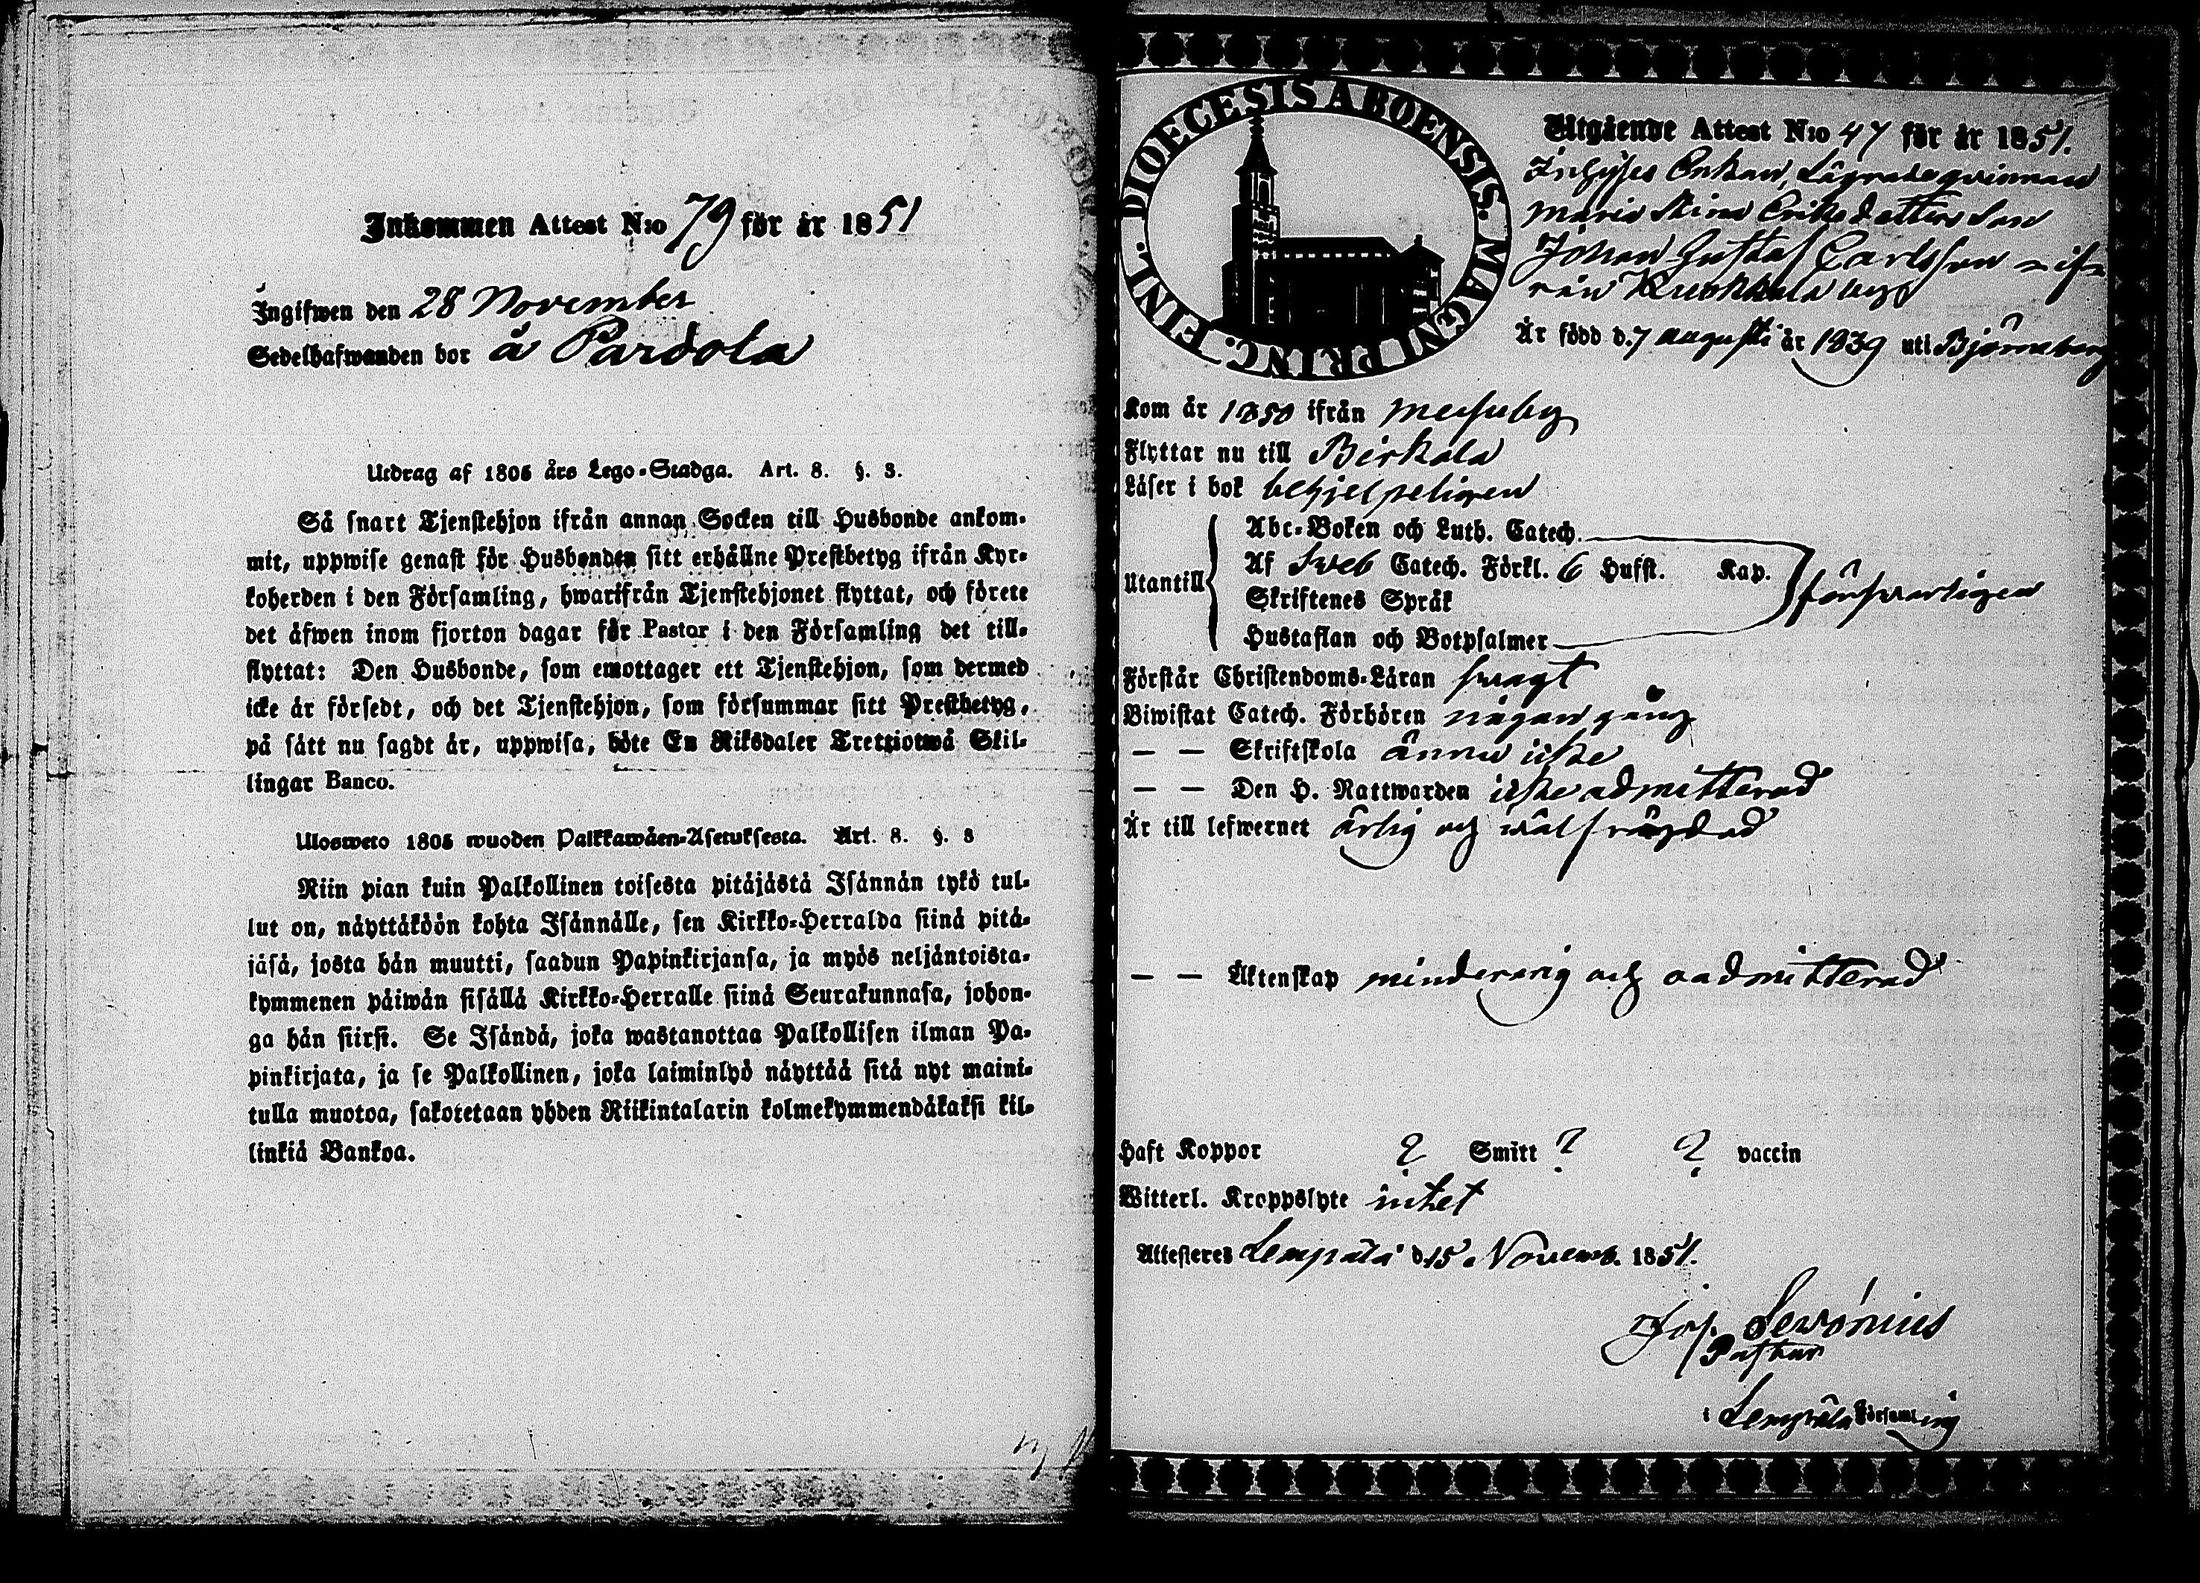 Inkommen Attest N:o 79 för år 1851
Ingifwen den 28 November
Sedelhafwanden bor å Pardola
Utdrag af 1805 års Lego-Stadga. Art. 8. §. 3.
Så snart Tjenstehjon ifrån annan Socken till Husbonde ankom-
mit, uppwise genast för Husbonden sitt erhållne Prestbetyg ifrån Kyr-
koherden i den Församling, hwarifrån Tjenstehjonet flyttat, och förete
det äfwen inom fjorton dagar för Pastor i den Församling det till-
flyttat: Den Husbonde, som emottager ett Tjenstehjon, som dermed
icke är försedt, och det Tjenstehjon, som försummar sitt Prestbetyg,
på sätt nu sagdt är, uppwisa, böte En Riksdaler Trettiotwå Skil-
lingar Banco.
Ulosweto 1805 wuoden Palkkawäen-Asetuksesta. Art. 8. §. 3
Niin pian kuin Palkollinen toisesta pitäjästä Isännän tykö tul-
lut on, näyttäköön kohta Isännälle, sen Kirkko-Herralda siinä pitä-
jäsä, josta hän muutti, saadun Papinkirjansa, ja myös neljäntoista-
kymmenen päiwän sisällä Kirkko-Herralle siinä Seurakunnasa, johon-
ga hän siirsi. Se Isändä, joka wastanottaa Palkollisen ilman Pa-
pinkirjata, ja se Palkollinen, joka laiminlyö näyttää sitä nyt maini-
tulla muotoa, sakotetaan yhden Riikintalarin kolmekymmendäkaksi kil-
linkiä Bankoa.
DIOECESIS ABOENSIS. MAGNI PRINC. FINL.
Utgående Attest N:o 47 för år 1851.
Inhyses Enkan, Lägrade qvinnan
Maria Stina Eriksdotters Son
Johan Gustaf Carlsson if-
rån Kuokkala by
Är född d. 7 augusti år 1839 uti Björneborg
Kom år 1850 ifrån Messuby
Flyttar nu till Birkala
Läser i bok behjelpeligen
Utantill
Abc-Boken och Luth. Catech.
Af Sveb Catech. Förkl. 6 Hufst. Kap.
Skriftenes Språk
Hustaflan och Botpsalmer
försvarligen
Förstår Christendoms-Läran svagt
Biwistat Catech. Förhören någon gång
— — Skriftskola ännu icke
— — Den H. Nattwarden icke admitterad
Är till lefwernet ärlig och välfrägdad
— — Äktenskap minderårig och oadmitterad
Haft Koppor ? Smitt ? ? vaccin
Witterl. Kroppslyte intet
Attesteres Lempälä d. 15 Novemb. 1851.
Jos. Sevónius
Pastor
i Lempälä Församling